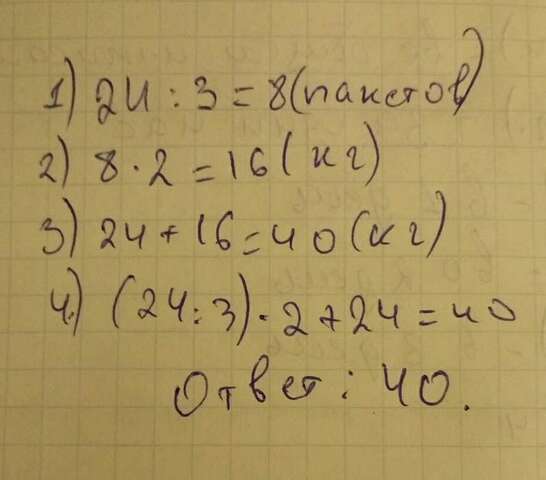 1) 24 : 3 = 8 (пакетов)
2) 8 · 2 = 16 (кг)
3) 24 + 16 = 40 (кг)
4) (24 : 3) · 2 + 24 = 40
Ответ : 40.